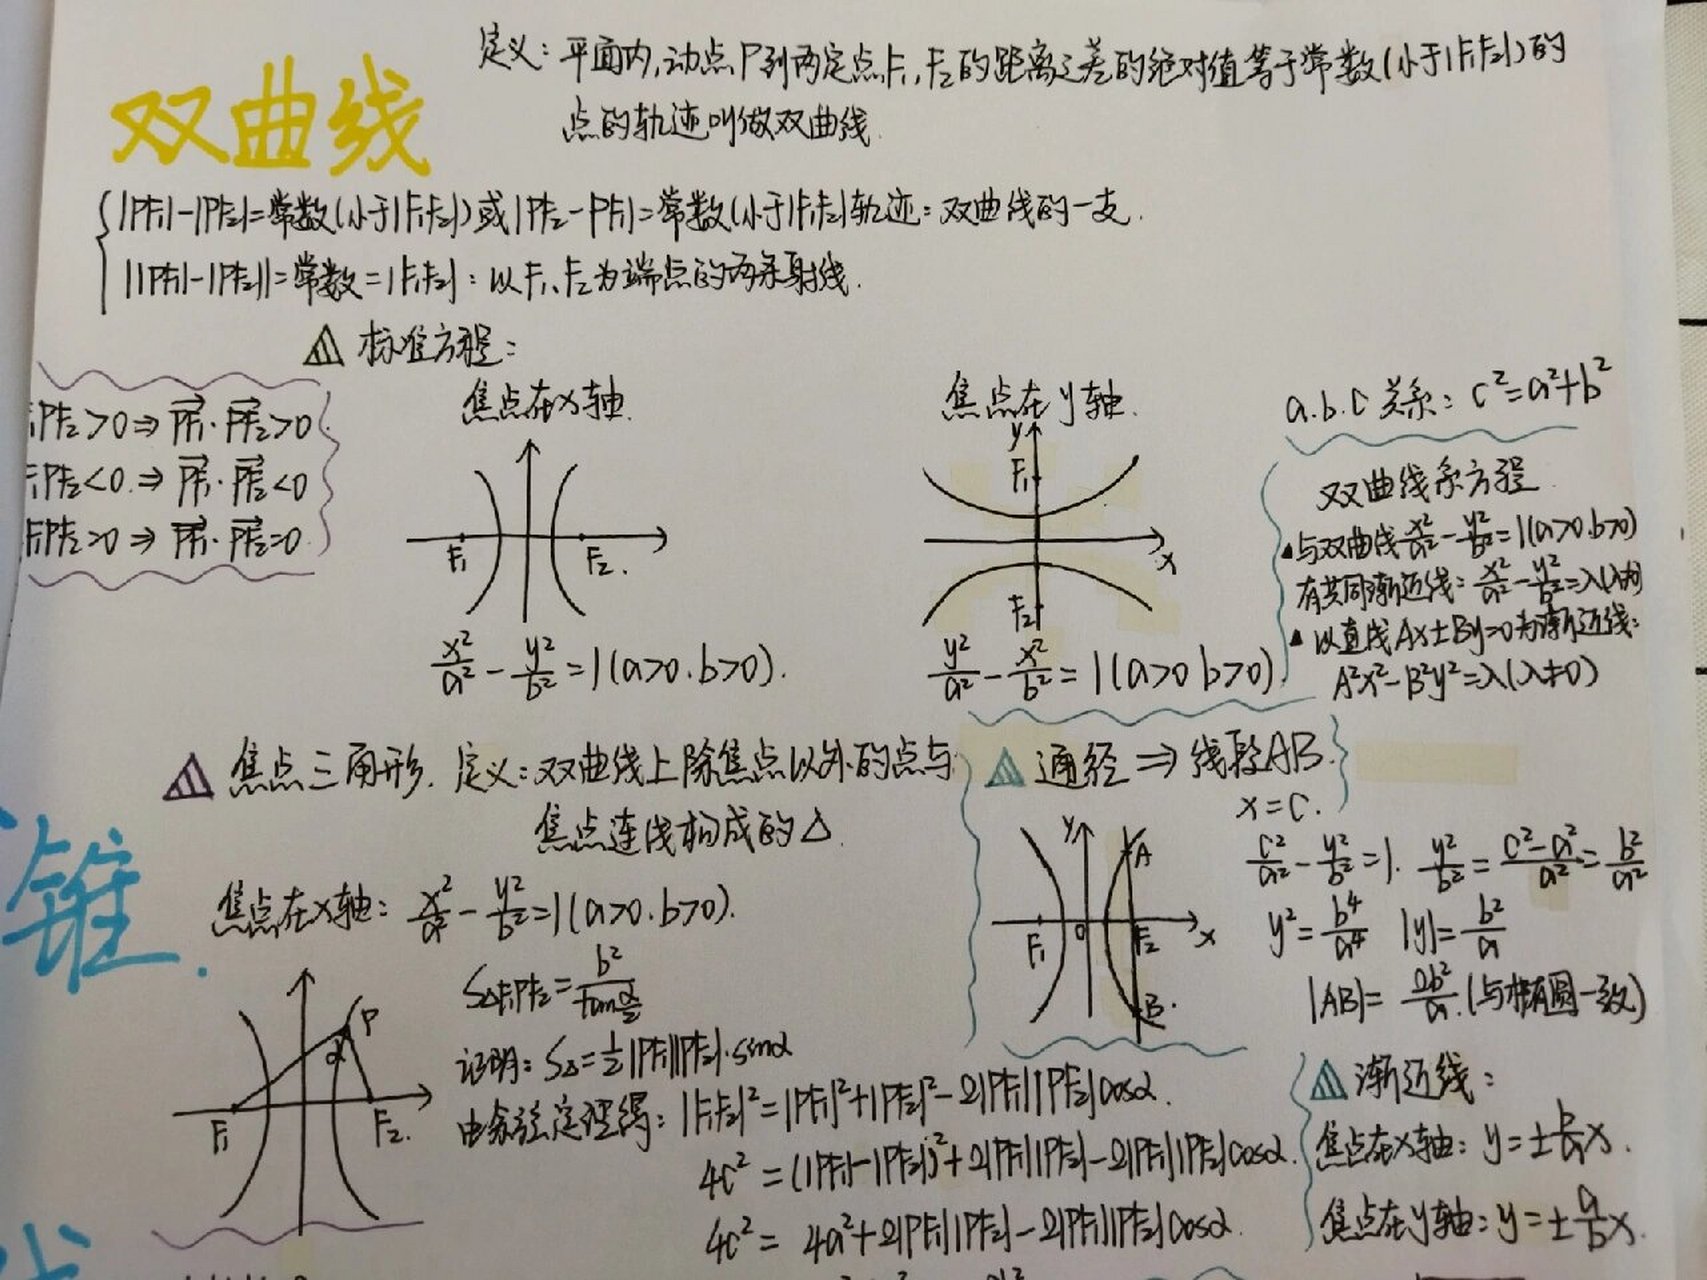 双曲线
定义：平面内,动点P到两定点F₁,F₂的距离之差的绝对值等于常数(小于|F₁F₂|)的
点的轨迹叫做双曲线.
|PF₁|-|PF₂|=常数(小于|F₁F₂|)或|PF₂-PF₁|=常数(小于|F₁F₂|轨迹：双曲线的一支.
||PF₁|-|PF₂||=常数=|F₁F₂|：以F₁、F₂为端点的两条射线.
标准方程：
F₁PF₂>0⇒PF₁·PF₂>0
F₁PF₂<0.⇒PF₁·PF₂<0
F₁PF₂=0⇒PF₁·PF₂=0
焦点在x轴.
F₁ F₂.
x²/a² - y²/b² =1(a>0.b>0).
焦点在y轴.
y
F₁
x
F₂
y²/a² - x²/b² =1(a>0 b>0)
a.b.c关系：c²=a²+b²
双曲线系方程
与双曲线x²/a² - y²/b² =1(a>0.b>0)
有共同渐近线：x²/a² - y²/b² =λ(λ≠0)
以直线Ax±By=0为渐近线：
A²x²-B²y²=λ(λ≠0)
焦点三角形. 定义：双曲线上除焦点以外的点与
焦点连线构成的△.
焦点在x轴：x²/a² - y²/b² =1(a>0.b>0).
S△F₁PF₂= b²/tan(α/2)
P
α
F₁ F₂.
证明：S△=½|PF₁||PF₂|·sinα
由余弦定理得：|F₁F₂|²=|PF₁|²+|PF₂|²-2|PF₁||PF₂|cosα.
4c²=(|PF₁|-|PF₂|)²+2|PF₁||PF₂|-2|PF₁||PF₂|cosα.
4c²= 4a²+2|PF₁||PF₂|-2|PF₁||PF₂|cosα.
通径⇒线段AB.
x=c.
y
A
F₁ O F₂ x
B.
c²/a² - y²/b² =1. y²/b² = (c²-a²)/a² = b²/a²
y²= b⁴/a⁴ |y|= b²/a
|AB|= 2b²/a.(与椭圆一致)
渐近线：
焦点在x轴：y=±b/a x.
焦点在y轴：y=±a/b x.
锥